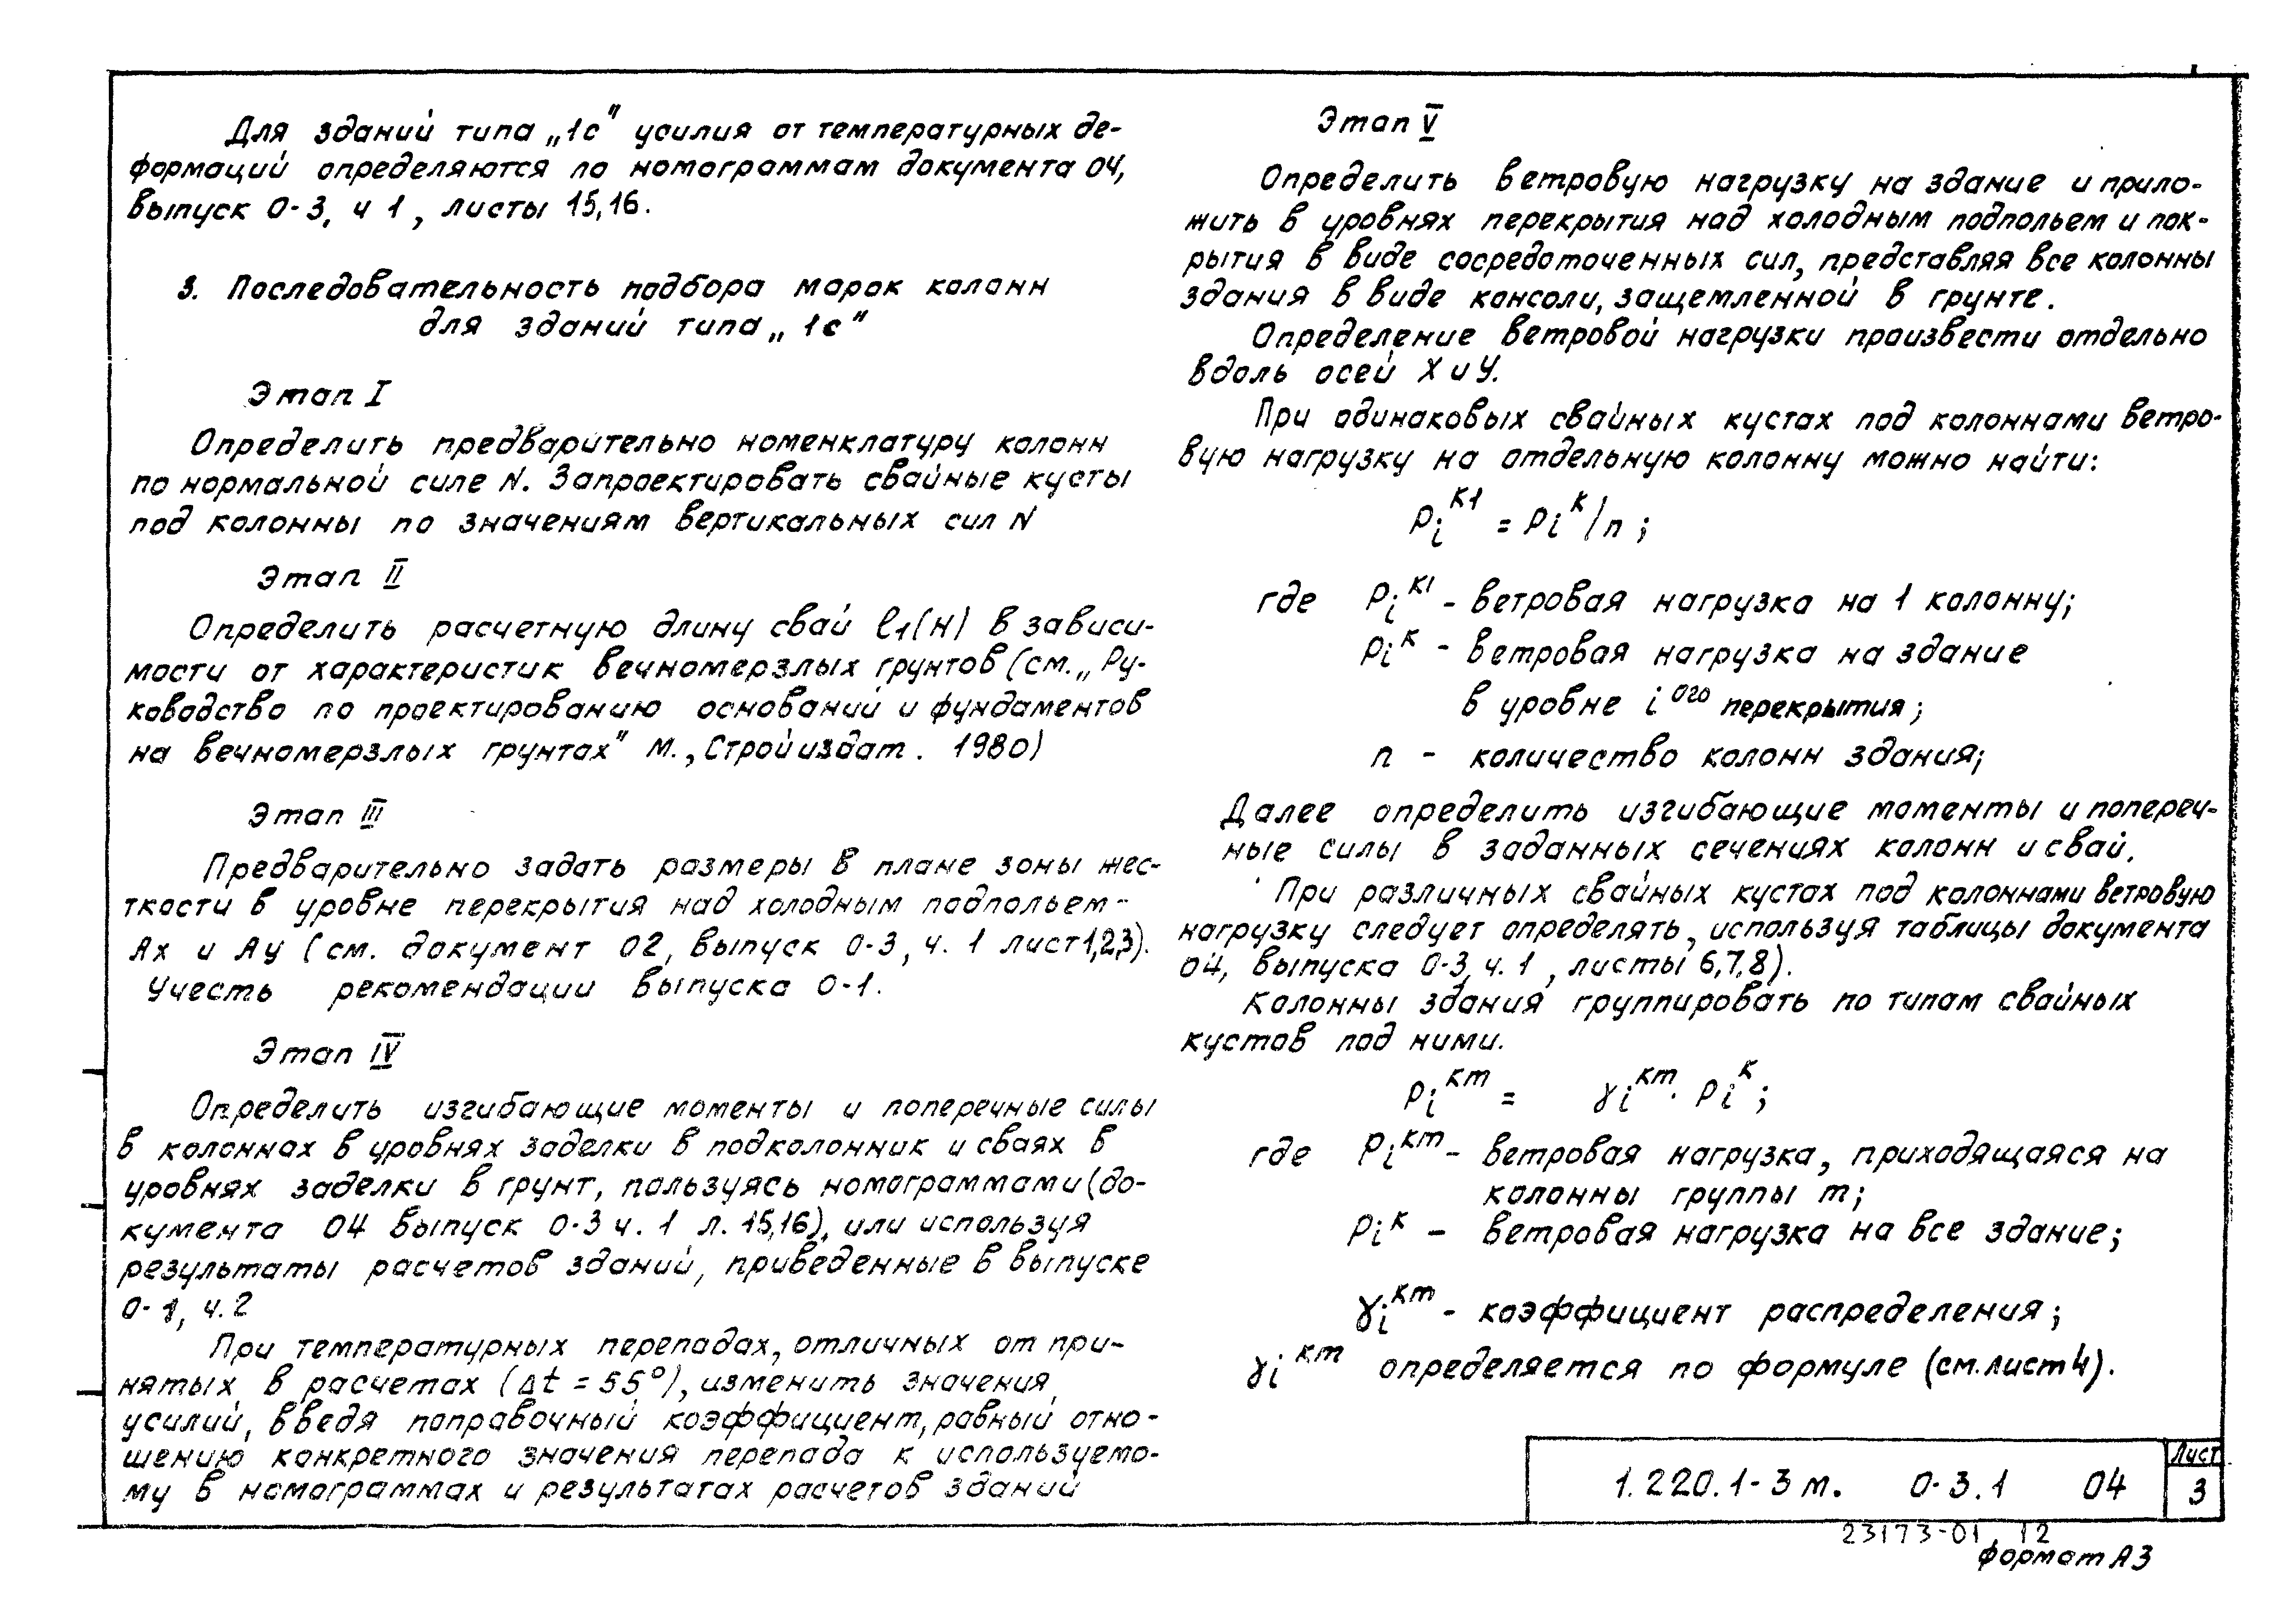 Для зданий типа „1с" усилия от температурных де-
формаций определяются по номограммам документа 04,
выпуск 0-3, ч 1, листы 15,16.
3. Последовательность подбора марок колонн
для зданий типа „1с"
Этап I
Определить предварительно номенклатуру колонн
по нормальной силе N. Запроектировать свайные кусты
под колонны по значениям вертикальных сил N
Этап II
Определить расчетную длину свай ℓ1(Н) в зависи-
мости от характеристик вечномерзлых грунтов (см. „Ру-
ководство по проектированию оснований и фундаментов
на вечномерзлых грунтах" М., Стройиздат. 1980)
Этап III
Предварительно задать размеры в плане зоны жес-
ткости в уровне перекрытия над холодным подпольем-
Ах и Ау (см. документ 02, выпуск 0-3, ч. 1 лист 1,2,3).
Учесть рекомендации выпуска 0-1.
Этап IV
Определить изгибающие моменты и поперечные силы
в колоннах в уровнях заделки в подколонник и сваях в
уровнях заделки в грунт, пользуясь номограммами (до-
кумента 04 выпуск 0-3 ч. 1 л. 15,16), или используя
результаты расчетов зданий, приведенные в выпуске
0-1, ч.2
При температурных перепадах, отличных от при-
нятых в расчетах (Δt = 55°), изменить значения
усилий, введя поправочный коэффициент, равный отно-
шению конкретного значения перепада к используемо-
му в номограммах и результатах расчетов зданий
Этап V
Определить ветровую нагрузку на здание и прило-
жить в уровнях перекрытия над холодным подпольем и пок-
рытия в виде сосредоточенных сил, представляя все колонны
здания в виде консоли, защемленной в грунте.
Определение ветровой нагрузки произвести отдельно
вдоль осей Х и У.
При одинаковых свайных кустах под колоннами ветро-
вую нагрузку на отдельную колонну можно найти:
Pi^К1 = Pi^К/n;
где Pi^К1 - ветровая нагрузка на 1 колонну;
Pi^К - ветровая нагрузка на здание
в уровне i ого перекрытия;
n - количество колонн здания;
Далее определить изгибающие моменты и попереч-
ные силы в заданных сечениях колонн и свай.
При различных свайных кустах под колоннами ветровую
нагрузку следует определять, используя таблицы документа
04, выпуска 0-3, ч. 1, листы 6,7,8).
Колонны здания группировать по типам свайных
кустов под ними.
Pi^Кm = γi^Кm · Pi^К;
где Pi^Кm - ветровая нагрузка, приходящаяся на
колонны группы m;
Pi^К - ветровая нагрузка на все здание;
γi^Кm - коэффициент распределения;
γi^Кm определяется по формуле (см. лист 4).
1.220.1-3м. 0-3.1 04
Лист
3
23173-01, 12
формат А3